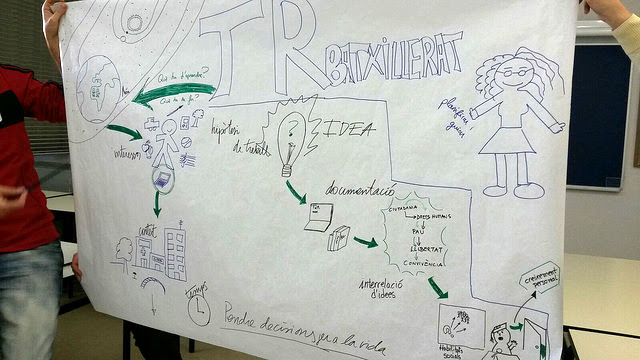 TR
BATXILLERAT
Què he d'aprendre?
Què he de fer?
Món
interessos
hipòtesi
de treball
IDEA
planificar i
guiar
documentació
CIUTADANIA
DRETS HUMANS
PAU
LLIBERTAT
CONVIVÈNCIA
interrelació
d'idees
temps
Prendre decisions per a la vida
Habilitats
socials
creixement
personal